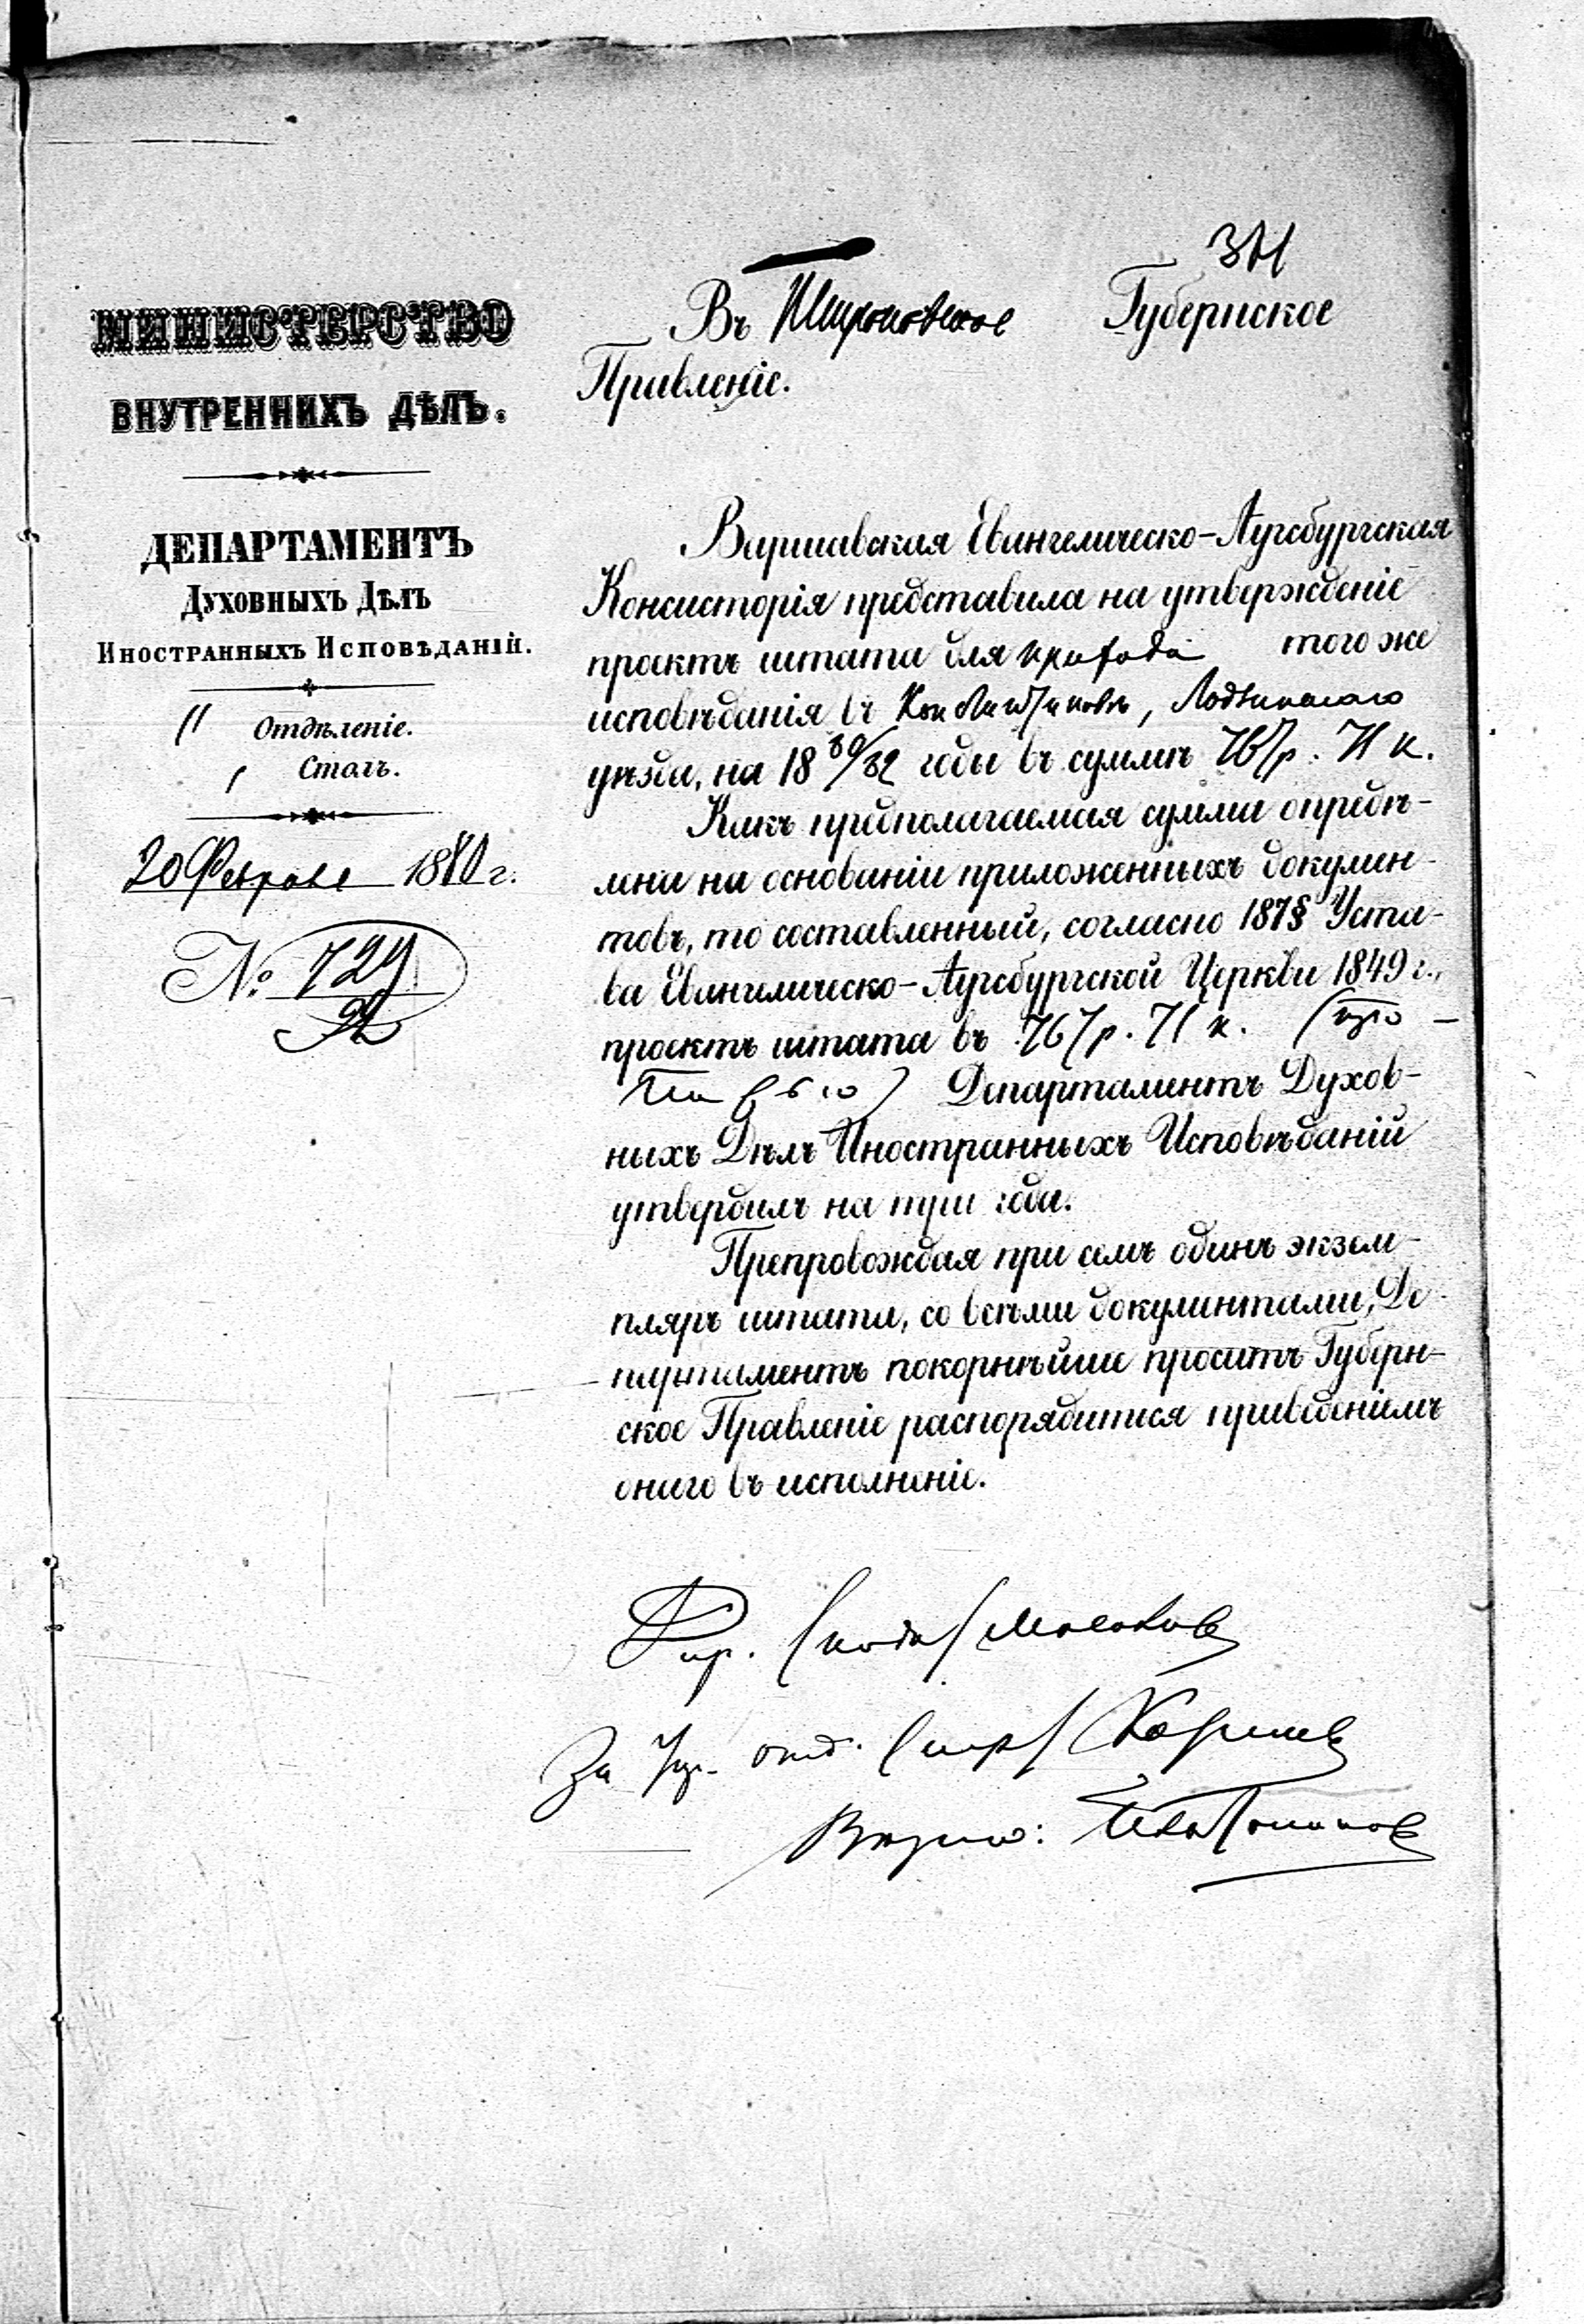 МИНИСТЕРСТВО
ВНУТРЕННИХЪ ДѢЛЪ.
ДЕПАРТАМЕНТЪ
ДУХОВНЫХЪ ДѢЛЪ
ИНОСТРАННЫХЪ ИСПОВѢДАНІЙ.
II Отдѣленіе.
Столъ.
20 Февраля 1880 г.
№ 729
Въ Петроковское Губернское
Правленіе.
Варшавская Евангелическо-Аугсбургская
Консисторія представила на утвержденіе
проектъ штата для прихода того же
исповѣданія въ Константиновѣ, Лодзинскаго
уѣзда, на 18 80/82 годы въ суммѣ 767 р. 71 к.
Какъ предполагаемая сумма опредѣ-
лена на основаніи приложенныхъ докумен-
товъ, то составленный, согласно 187 § Уста-
ва Евангелическо-Аугсбургской Церкви 1849 г.,
проектъ штата въ 767 р. 71 к.
Департаментъ Духов-
ныхъ Дѣлъ Иностранныхъ Исповѣданій
утвердилъ на три года.
Препровождая при семъ одинъ экзем-
пляръ штата, со всѣми документами, Де-
партаментъ покорнѣйше проситъ Губерн-
ское Правленіе распорядиться приведеніемъ
онаго въ исполненіе.
Дир. (подп) Мосолов
За Нач. отд. (скр)
Вѣрно: